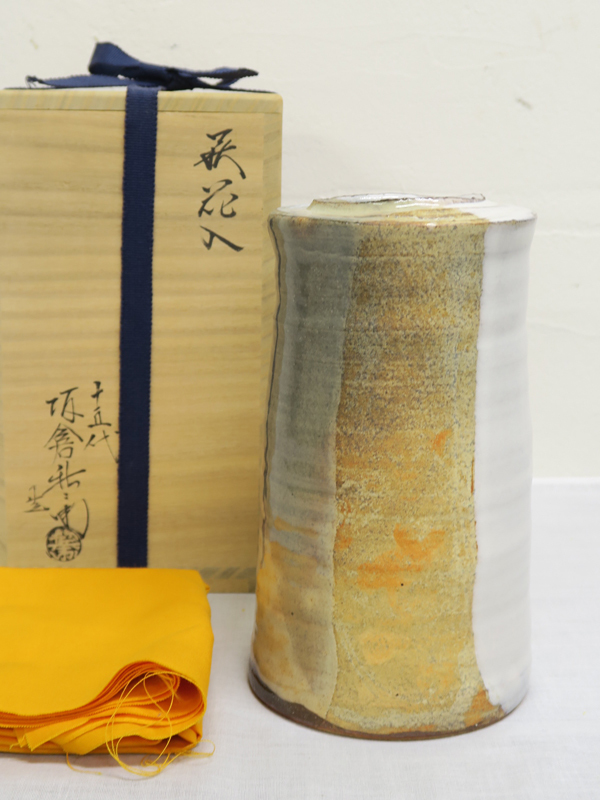 萩花入
十五代
坂倉新兵衛
造